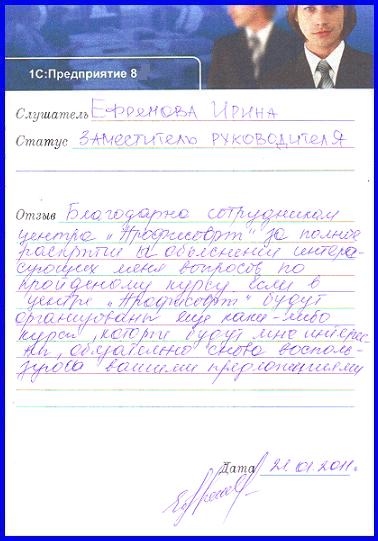 1С:Предприятие 8
Слушатель Ефремова Ирина
Статус заместитель руководителя
Отзыв Благодарна сотрудникам
центра „Профисофт" за полное
раскрытие и объяснении интере-
сующих меня вопросов по
пройденому курсу. Если в
центре „Профисофт" будут
организованы еще какие-либо
курсы, которые будут мне интерес-
ны, обязательно снова восполь-
зуюсь вашими предложениями
Дата 21.01.2011г.